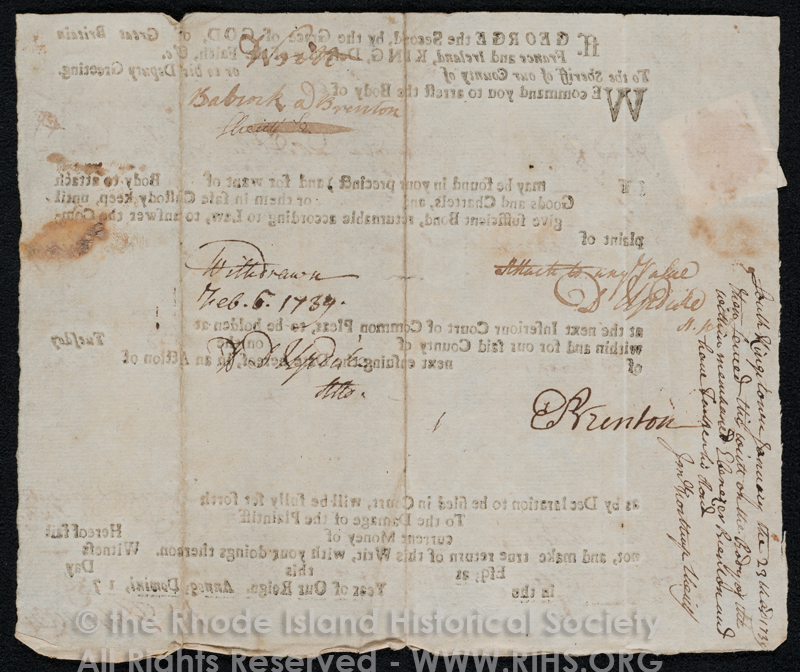 ſſ. GEORGE the Second, by the Grace of GOD, of Great Britain
France and Ireland, KING, D Faith, &c.
Writ
To the Sheriff of our County of or to his Deputy Greeting.
WE command you to arrest the Body of
Babcock a Brenton
IF may be found in your precinct) and for want of Body to attach
Goods and Chattels, and or them in safe Custody keep, until
give sufficient Bond, returnable according to Law, to answer the Com-
plaint of
Withdrawn
Feb. 6. 1739.
D Updike
Atto.
Attach to any Value
D Updike
at the next Inferiour Court of Common Pleas, to be holden at
within and for our said County of on the Tuesday
of next ensuing, the date hereof, in an Action of
E Brenton
as by Declaration to be filed in Court, will be fully set forth
To the Damage of the Plaintiff
current Money of Hereof fail
not, and make true return of this Writ, with your doings thereon. Witness
Esq; at this Day
in the Year of Our Reign. Annoq; Domini, 1 7
South Kingstown January the 23 1739
then Served this writ on the body of the
within mentioned Ebenezer Brenton and
have his Bond
© the Rhode Island Historical Society
All Rights Reserved - WWW.RIHS.ORG